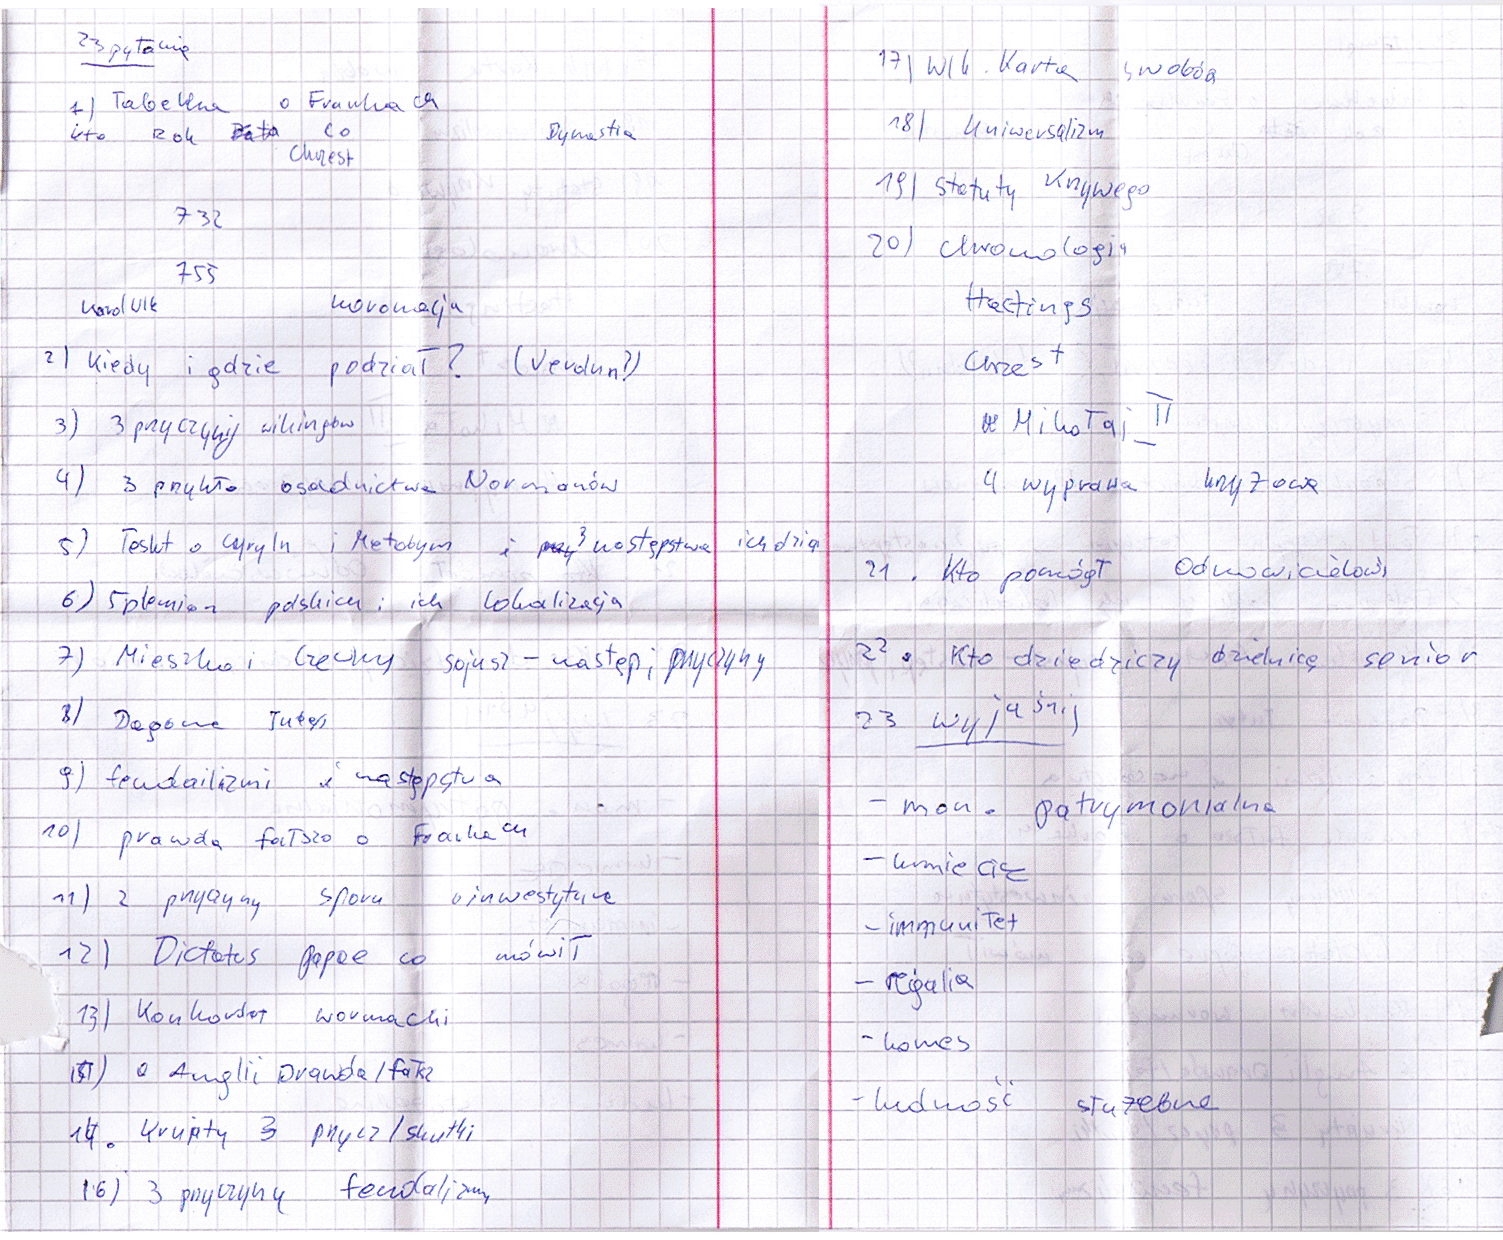 23 pytania
1) Tabelka o Frankach
kto Rok Data co Dynastia
Chrzest
732
755
Karol Wlk koronacja
2) Kiedy i gdzie podział? (Verdun?)
3) 3 przyczyny wikingów
4) 3 przykła osadnictwa Normanów
5) Teskt o Cyrylu i Metodym i 3 następstwa ich dzia
6) 5 plemion polskich i ich lokalizacja
7) Mieszko i Czechy sojusz - następ i przyczyny
8) Dagome Iudex
9) feudalizm i następstwa
10) prawda fałszo o Frankach
11) 2 przyczyny sporu o inwestyturę
12) Dictatus papae co mówił
13) Konkordat wormacki
o Anglii Prawda/fałsz
14. Krupaty 3 przycz/skutki
16) 3 przyczyny feudalizmu
17) Wlk. Karta swobód
18) Uniwersalizm
19) statuty Krzywego
20) chronologia
Hastings
Chrzest
Mikołaj II
4 wyprawa krzyżowa
21. Kto pomógł Odnowicielowi
22. Kto dziedziczy dzielnicę senior
23 wyjaśnij
- mon. patrymonialna
- kmiecie
- immunitet
- regalia
- komes
- ludność służebna